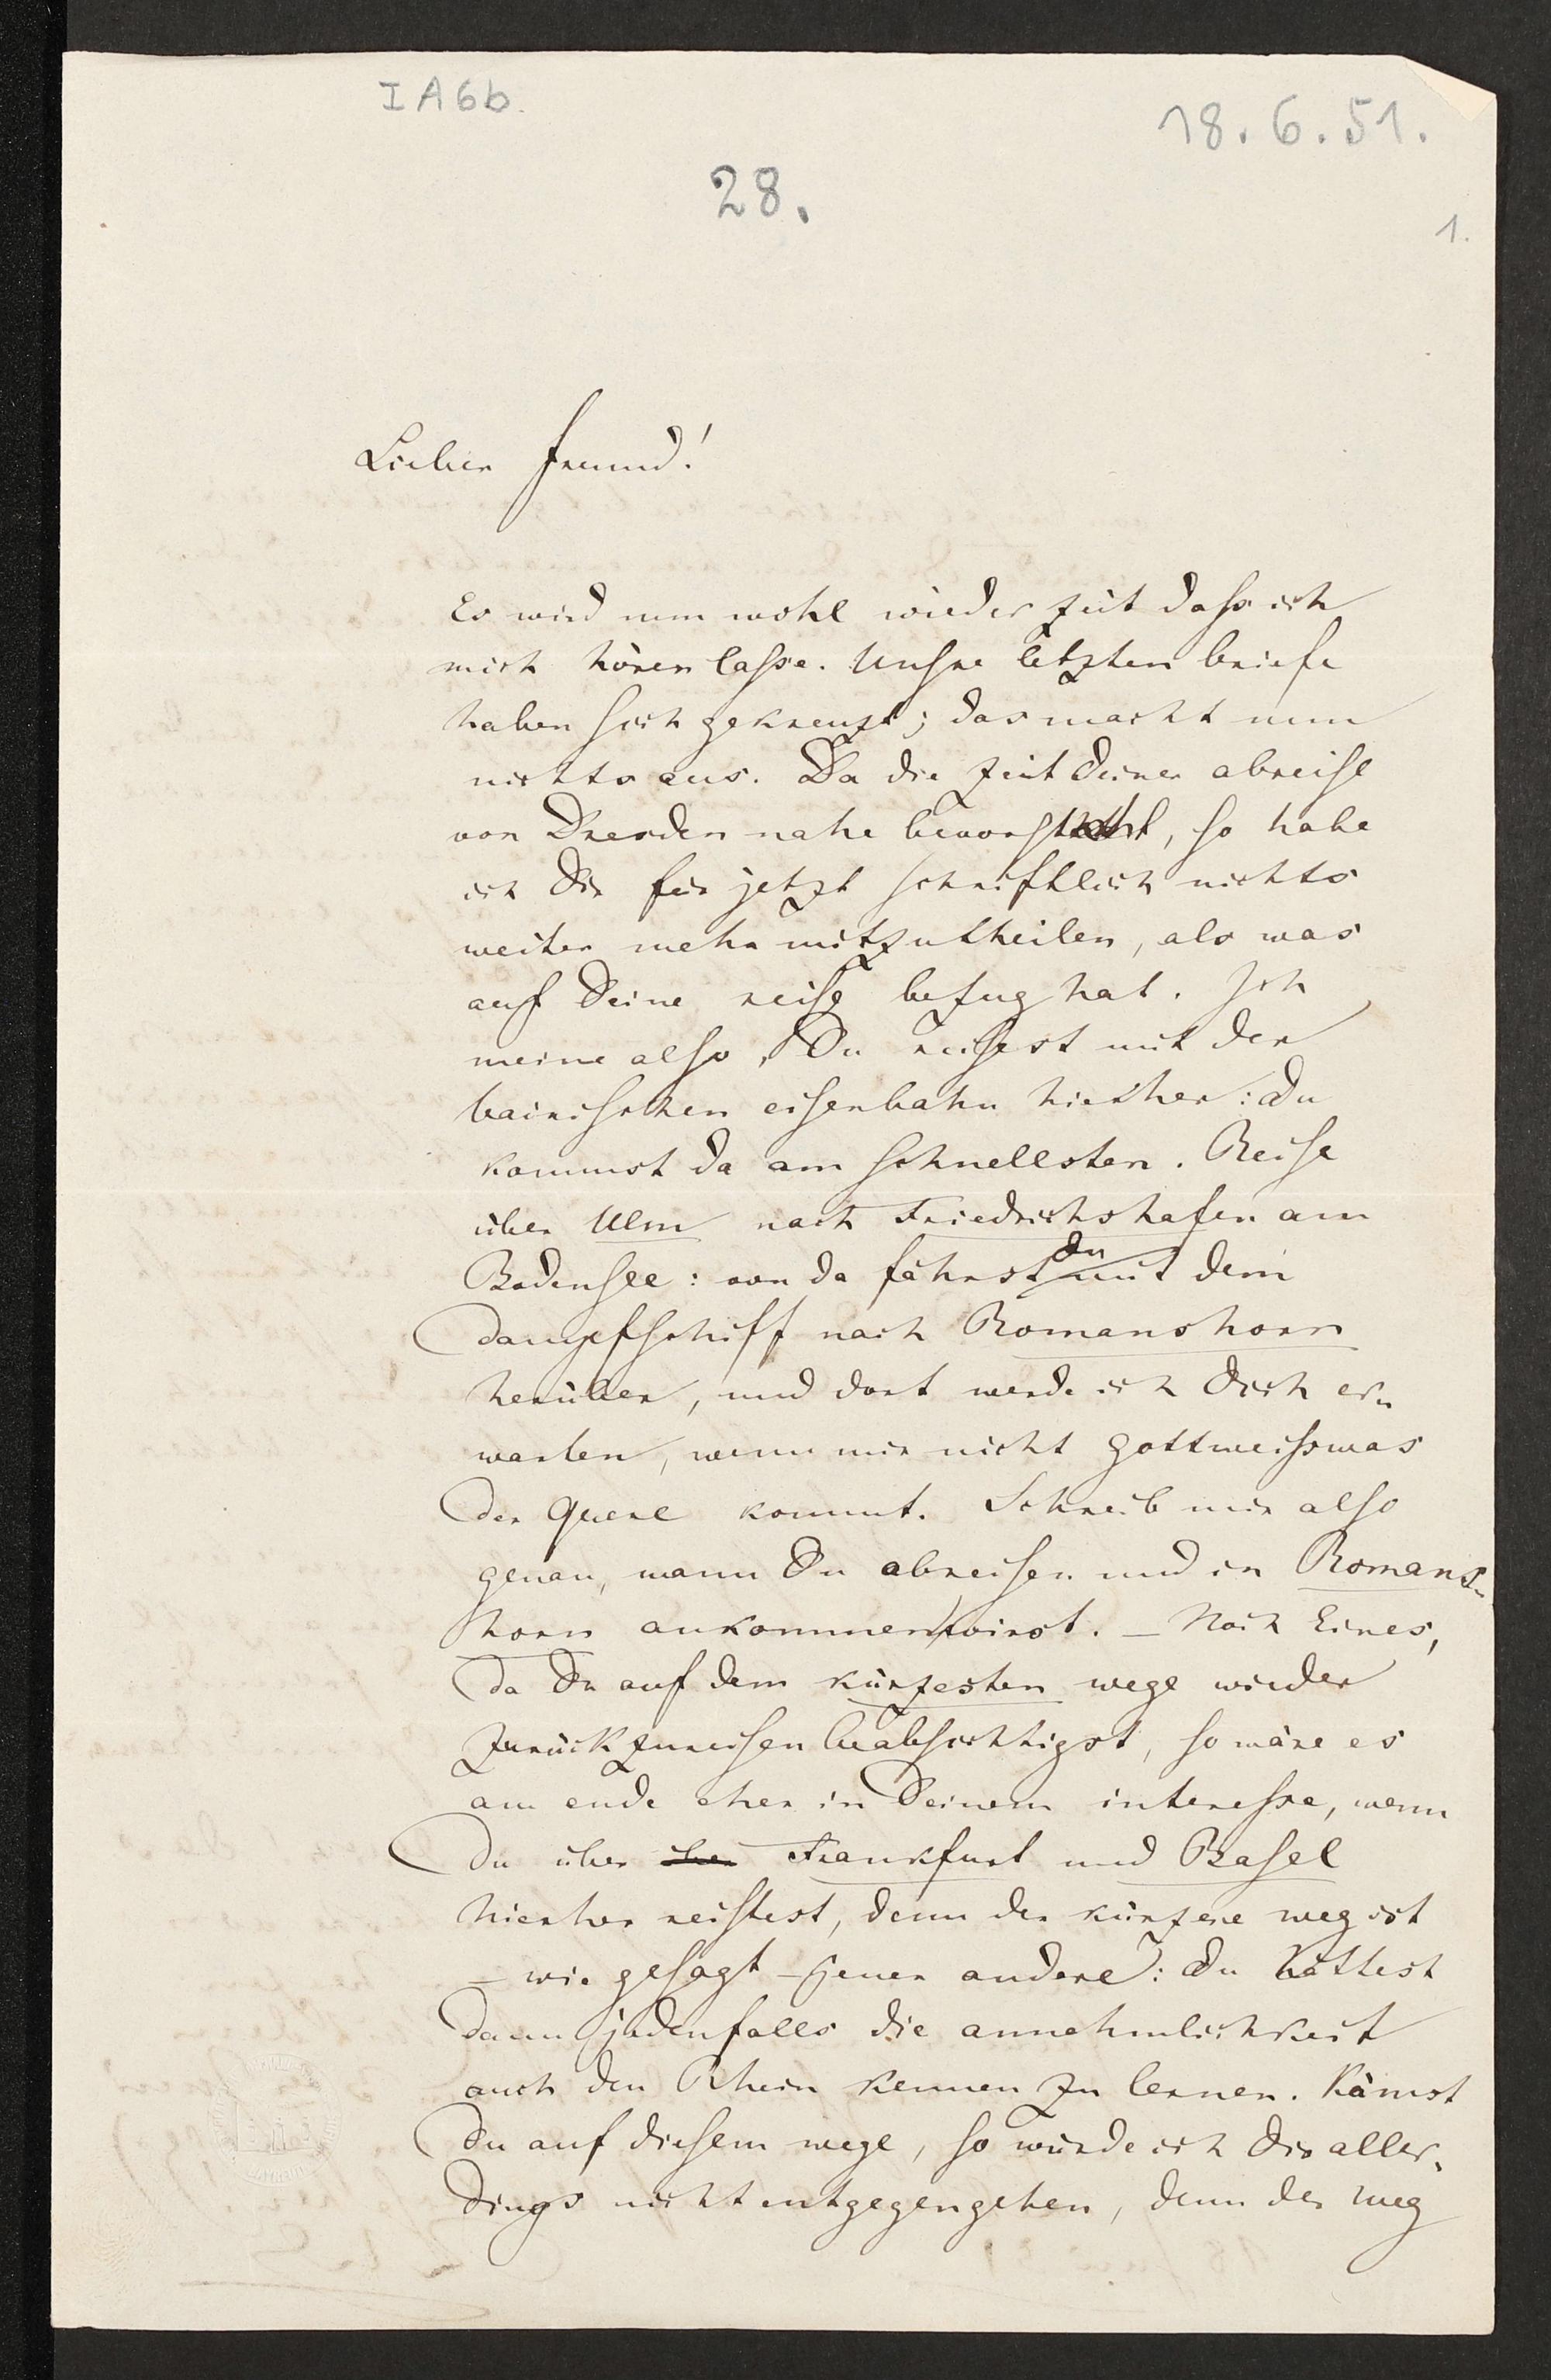 I A 6 b.
18. 6. 51.
28.
1.
Lieber freund!
Es wird nun wohl wieder zeit dass ich
mich hören lasse. Unsre letzten briefe
haben sich gekreuzt; das macht nun
nichts aus. Da die zeit Deiner abreise
von Dresden nahe bevorsteht, so habe
ich Dir für jetzt schriftlich nichts
weiter mehr mitzutheilen, als was
auf Deine reise bezug hat. Ich
meine also, Du reisest mit der
bairischen eisenbahn hierher: Du
kommst da am schnellsten. Reise
über Ulm nach Friedrichshafen am
Bodensee: von da fährst du mit dem
dampfschiff nach Romanshorn
herüber, und dort werde ich Dich er-
warten, wenn mir nicht gottweisswas
der quere kommt. Schreib mir also
genau, wann Du abreisen und in Romans-
horn ankommen wirst. – Noch Eines,
da Du auf dem kürzesten wege wieder
zurückzureisen beabsichtigst, so wäre es
am ende eher in Deinem interesse, wenn
Du über Frankfurt und Basel
hierher reistest, denn der kürzere weg ist
– wie gesagt – jener andere: Du hättest
dann jedenfalls die annehmlichkeit
auch den Rhein kennen zu lernen. Kämst
Du auf diesem wege, so würde ich Dir aller-
dings nicht entgegengehen, denn der weg